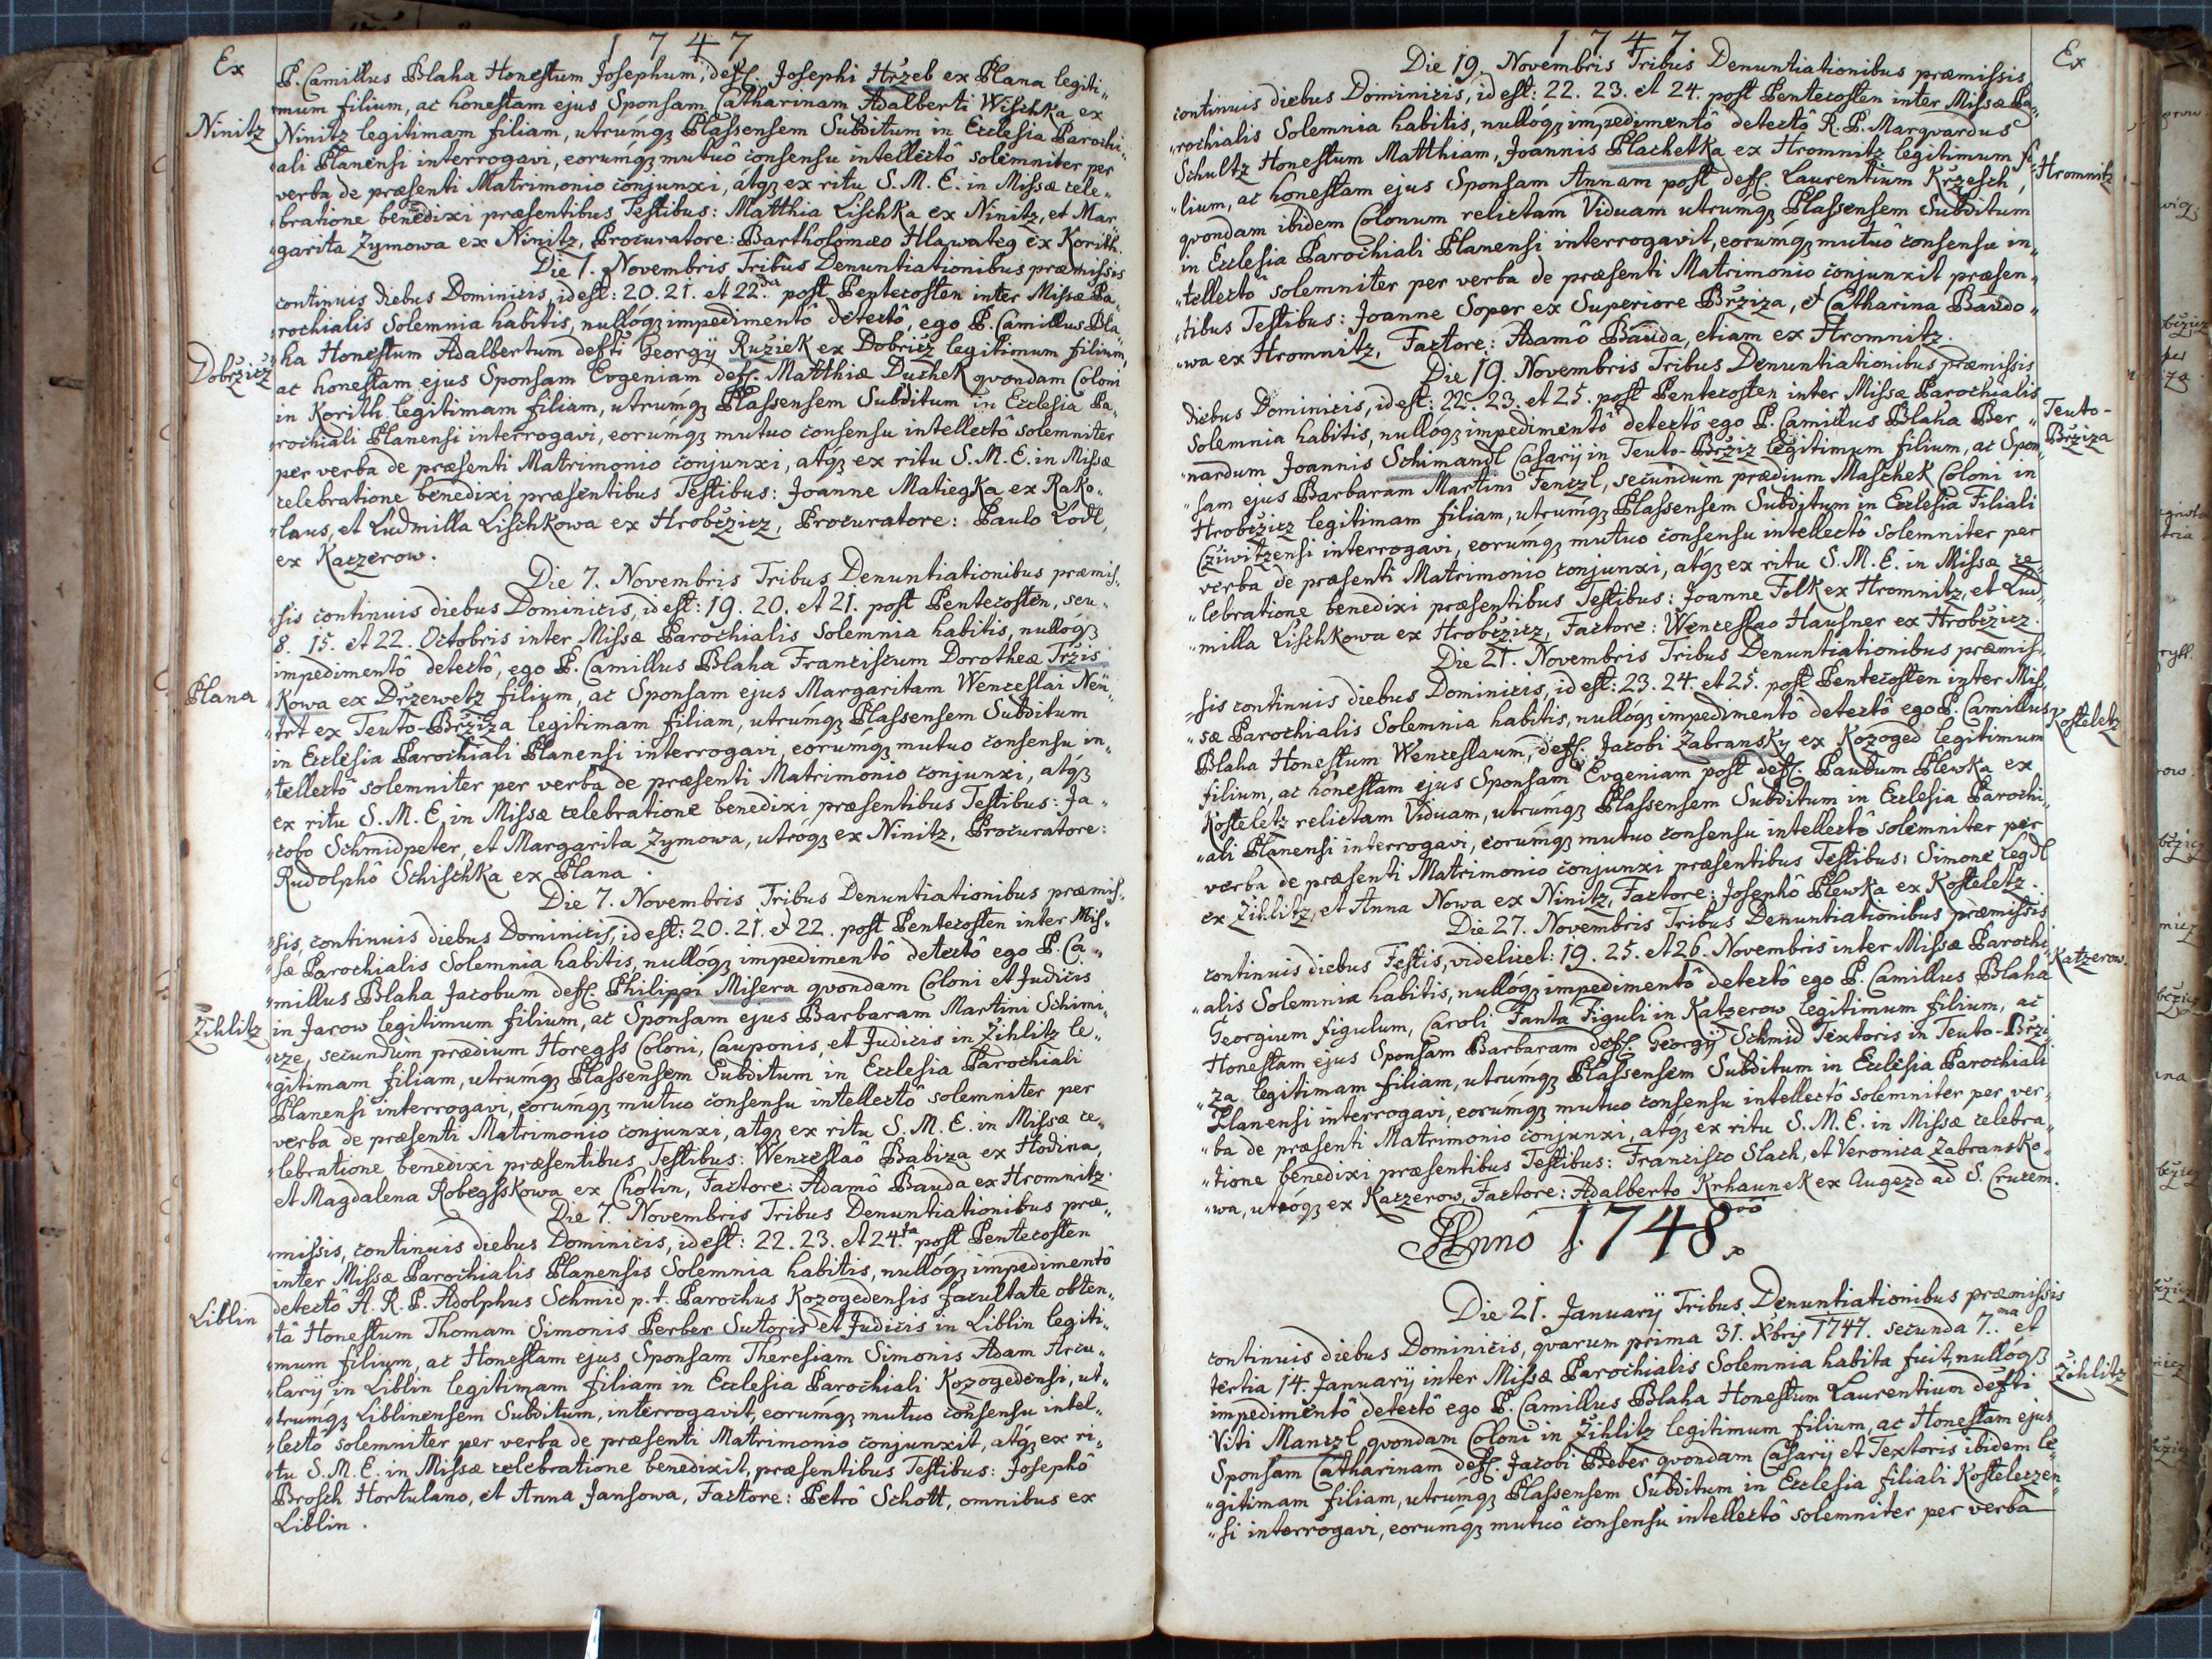 1747
Ex
P. Camillus Blaha Honestum Josephum, deff. Josephi Hržeb ex Plana legiti„
„mum filium, ac honestam ejus Sponsam Catharinam Adalberti Wischka ex
Ninitz
Ninitz legitimam filiam, utrúmq3 Plassensem Subditum in Ecclesia Parochi„
„ali Planensi interrogavi, eorúmq3 mutuô consensu intellectô solemniter per
verba de præsenti Matrimonio conjunxi, átq3 ex ritu S. M. E. in Missæ cele„
„bratione benedixi præsentibus Testibus: Matthia Lischka ex Ninitz, et Mar„
„garita Zymowa ex Ninitz, Procuratore: Bartholomæo Hlawateg ex Korith.
Die 7. Novembris Tribus Denuntiationibus præmissis
continuis diebus Dominicis, id est: 20. 21. et 22da post Pentecosten inter Missæ Pa„
„rochialis Solemnia habitis, nullóq3 impedimentô détectô, ego P. Camillus Bla„
Dobržicz
„ha Honestum Adalbertum deffti Georgÿ Ružiek ex Dobricz legitimum filium,
ac honestam ejus Sponsam Evgeniam deff. Matthiæ Duchek qvondam Coloni
in Korith legitimam filiam, utrúmq3 Plassensem Subditum in Ecclesia Pa„
„rochiali Planensi interrogavi, eorúmq3 mutuo consensu intellectô solemniter
per verba de præsenti Matrimonio conjunxi, atq3 ex ritu S. M. E. in Missæ
celebratione benedixi præsentibus Testibus: Joanne Matiegka ex Rako„
„laus, et Ludmilla Lischkowa ex Hrobčzicz, Procuratore: Paulo Lódl,
ex Kaczerow.
Die 7. Novembris Tribus Denuntiationibus præmis„
„sis continuis diebus Dominicis, id est: 19. 20. et 21. post Pentecosten, seu„
8. 15. et 22. Octobris inter Missæ Parochialis Solemnia habitis, nullóq3
impedimentô detectô, ego P. Camillus Blaha Franciscum Dorotheæ Tržis
Plana
„kowa ex Držewetz filium, ac Sponsam ejus Margaritam Wenceslai Neü„
„trt ex Teuto-Bržiza legitimam filiam, utrúmq3 Plassensem Subditum
in Ecclesia Parochiali Planensi interrogavi, eorúmq3 mutuo consensu in„
„tellectô solemniter per verba de præsenti Matrimonio conjunxi, atq3
ex ritu S. M. E. in Missæ celebratione benedixi præsentibus Testibus: Ja„
„cobo Schmidpeter, et Margarita Zymowa, utróq3 ex Ninitz, Procuratore:
Rudolphô Schischka ex Plana.
Die 7. Novembris Tribus Denuntiationibus præmis„
„sis, continuis diebus Dominicis, id est: 20. 21. et 22. post Pentecosten inter Mis„
„sæ Parochialis Solemnia habitis, nullóq3 impedimentô detectô ego P. Ca„
„millus Blaha Jacobum deff. Philippi Misera qvondam Coloni et Judicis
Žihlitz
in Jarow legitimum filium, ac Sponsam ejus Barbaram Martini Schimi„
„cze, secundùm prædium Horegss Coloni, Cauponis, et Judicis in Žihlitz le„
„gitimam filiam, utrúmq3 Plassensem Subditum in Ecclesia Parochiali
Planensi interrogavi, eorúmq3 mutuo consensu intellectô solemniter per
verba de præsenti Matrimonio conjunxi, atq3 ex ritu S. M. E. in Missæ ce„
„lebratione benedixi præsentibus Testibus: Wenceslaô Babiza ex Hodina,
et Magdalena Robegsskowa ex Chotin, Factore: Adamô Bauda ex Hromnitz.
Die 7. Novembris Tribus Denuntiationibus præ„
„missis, continuis diebus Dominicis, id est: 22. 23. et 24.ta post Pentecosten
inter Missæ Parochialis Planensis Solemnia habitis, nullóq3 impedimentô
Liblin
detectô A. R. P. Adolphus Schmid p. t. Parochus Kozogedensis facultate obten„
„tâ Honestum Thomam Simonis Perber Sutoris et Judicis in Liblin legiti„
„mum filium, ac Honestam ejus Sponsam Theresiam Simonis Adam Arcu„
„larÿ in Liblin legitimam filiam in Ecclesia Parochiali Kozogedensi, ut„
„trumq3 Liblinensem Subditum, interrogavit, eorúmq3 mutuo consensu intel„
„lectô solemniter per verba de præsenti Matrimonio conjunxit, atq3 ex ri„
„tu S. M. E. in Missæ celebratione benedixit, præsentibus Testibus: Josephô
Brosch Hortulano, et Anna Jansowa, Factore: Petrô Schott, omnibus ex
Liblin.
1747
Ex
Die 19. Novembris Tribus Denuntiationibus præmissis
continuis diebus Dominicis, id est: 22. 23. et 24. post Pentecosten inter Missæ Pa„
„rochialis Solemnia habitis, nullóq3 impedimentô detectô R. P. Marqvardus
Schultz Honestum Matthiam, Joannis Plachetka ex Hromnitz legitimum fi„
Hromnitz
„lium, ac honestam ejus Sponsam Annam post deff. Laurentium Kržesch,
qvondam ibidem Colonum relictam Viduam utrúmq3 Plassensem Subditum
in Ecclesia Parochiali Planensi interrogavit, eorumq3 mutuô consensu in„
„tellectô solemniter per verba de præsenti Matrimonio conjunxit præsen„
„tibus Testibus: Joanne Soper ex Superiore Bržiza, et Catharina Baudo„
„wa ex Hromnitz, Factore: Adamô Bauda, etiam ex Hromnitz.
Die 19. Novembris Tribus Denuntiationibus præmissis
diebus Dominicis, id est: 22. 23. et 25. post Pentecosten inter Missæ Parochialis
Teuto-
Bržiza
Solemnia habitis, nullóq3 impedimentô detectô ego P. Camillus Blaha Ber„
„nardum Joannis Schimandl Casarÿ in Teuto-Bržiz legitimum filium, ac Spon„
„sam ejus Barbaram Martini Fenczl, secundùm prædium Maschek Coloni in
Hrobčzicz legitimam filiam, utrúmq3 Plassensem Subditum in Ecclesia Filiali
Cžiwitzensi interrogavi, eorumq3 mutuo consensu intellectô solemniter per
verba de præsenti Matrimonio conjunxi, átq3 ex ritu S. M. E. in Missæ ce„
„lebratione benedixi præsentibus Testibus: Joanne Folk ex Hromnitz, et Lud„
„milla Lischkowa ex Hrobčzicz, Factore: Wenceslao Hausner ex Hrobčzicz.
Die 21. Novembris Tribus Denuntiationibus præmis„
„sis continuis diebus Dominicis, id est: 23. 24. et 25. post Pentecosten inter Mis„
„sæ Parochialis Solemnia habitis, nullóq3 impedimentô detectô ego P. Camillus
Kosteletz
Blaha Honestum Wenceslaum, deff. Jacobi Zabransky ex Kozoged legitimum
filium, ac honestam ejus Sponsam Evgeniam post deff. Paulum Plewka ex
Kosteletz relictam Viduam, utrúmq3 Plassensem Subditum in Ecclesia Parochi„
„ali Planensi interrogavi, eorúmq3 mutuo consensu intellectô solemniter per
verba de præsenti Matrimonio conjunxi præsentibus Testibus: Simone Legdl
ex Žihlitz, et Anna Nowa ex Ninitz, Factore: Josephô Plewka ex Kosteletz.
Die 27. Novembris Tribus Denuntiationibus præmissis
continuis diebus Festis, videlicet: 19. 25. et 26. Novembris inter Missæ Parochi„
Katzerow.
„alis Solemnia habitis, nullóq3 impedimentô detectô ego P. Camillus Blaha
Georgium figulum, Caroli Fanta Figuli in Katzerow legitimum filium, ac
Honestam ejus Sponsam Barbaram deff. Georgÿ Schmid Textoris in Teuto-Brži„
„za legitimam filiam, utrúmq3 Plassensem Subditum in Ecclesia Parochiali
Planensi interrogavi, eorúmq3 mutuo consensu intellectô solemniter per ver„
„ba de præsenti Matrimonio conjunxi, atq3 ex ritu S. M. E. in Missæ celebra„
„tione benedixi præsentibus Testibus: Francisco Slach, et Veronica Zabransko„
„wa, utróq3 ex Kaczerow, Factore: Adalberto Krhaunek ex Augezd ad S. Crucem.
Anno 1748vo
Die 21. Januarÿ Tribus Denuntiationibus præmissis
continuis diebus Dominicis, qvarum prima 31. Xbris 1747. secunda 7.ma et
tertia 14. Januarÿ inter Missæ Parochialis Solemnia habita fuit, nullóq3
Žihlitz
impedimentô detectô ego P. Camillus Blaha Honestum Laurentium deffti
Viti Manczl qvondam Coloni in Žihlitz legitimum filium, ac Honestam ejus
Sponsam Catharinam deff. Jacobi Beber qvondam Casarÿ et Textoris ibidem le„
„gitimam filiam, utrúmq3 Plassensem Subditum in Ecclesia filiali Kosteleczen„
„si interrogavi, eorúmq3 mutuô consensu intellectô solemniter per verba